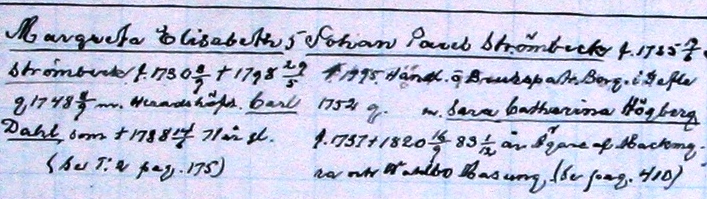 Margreta Elisabeth 5 Johan Pavel Strömbeck f. 1735
Strömbeck f. 1730 8/9 † 1798 29/5 † 1795 Handl. o Brukspatr. Borg. i Gefle
g 1748 m. Häradshöfd. Carl 1752 g. m. Sara Catharina Högberg
Dahl, som † 1788 71 år gl. f. 1737 † 1820 16/9 83 1/12 år Ägare af Mackmy-
(Se T. 2 pag. 175) ra och Wahlbo Masugn, (Se pag. 410)